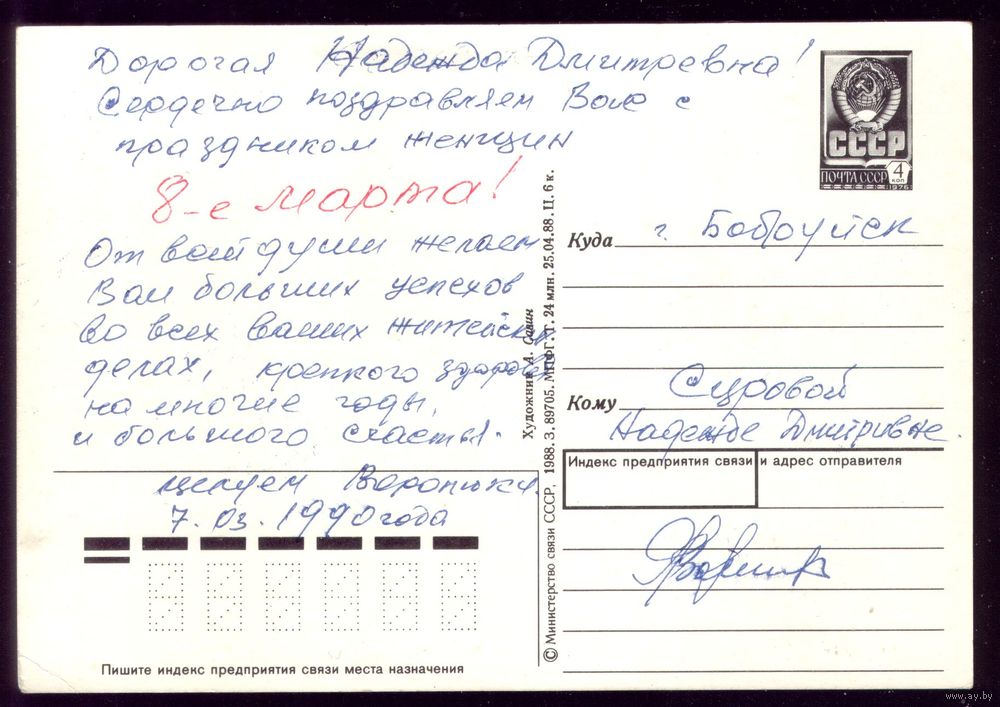 Дорогая Надежда Дмитревна!
Сердечно поздравляем Вас с
праздником женщин
8-е марта!
От всей души желаем
Вам больших успехов
во всех ваших житейских
делах, крепкого здоровья
на многие годы,
и большого счастья.
целуем
7.03.1990 года
СССР
ПОЧТА СССР 4 КОП
1976
Куда г. Бобруйск
Кому Суровой
Надежде Дмитривне.
Индекс предприятия связи и адрес отправителя
Художник А. Савин
© Министерство связи СССР, 1988. З. 89705. МПФГ. Т. 24 млн. 25.04.88. Ц. 6 к.
Пишите индекс предприятия связи места назначения
www.ay.by